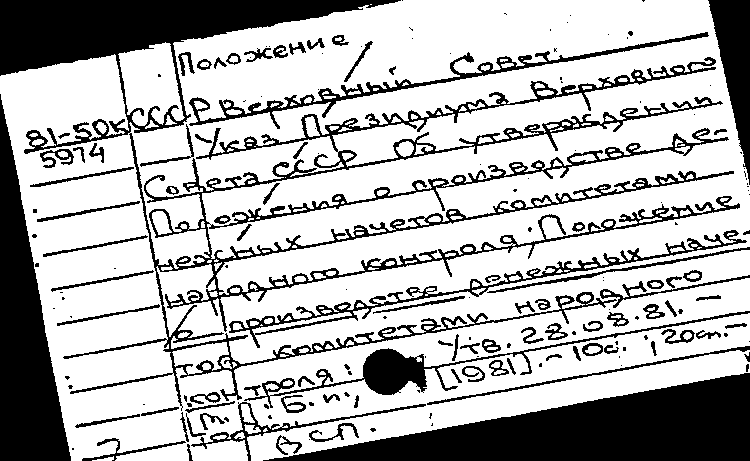 Положение
81-50к СССР Верховный Совет.
5974 Указ Президиума Верховного
Совета СССР Об утверждении
Положения о производстве де-
нежных начетов комитетами
народного контроля; Положение
о производстве денежных наче-
тов комитетами народного
контроля: Утв. 28.08.81. –
[М.]: Б.и., [1981]. – 10с. ; 20см. –
ВСП.